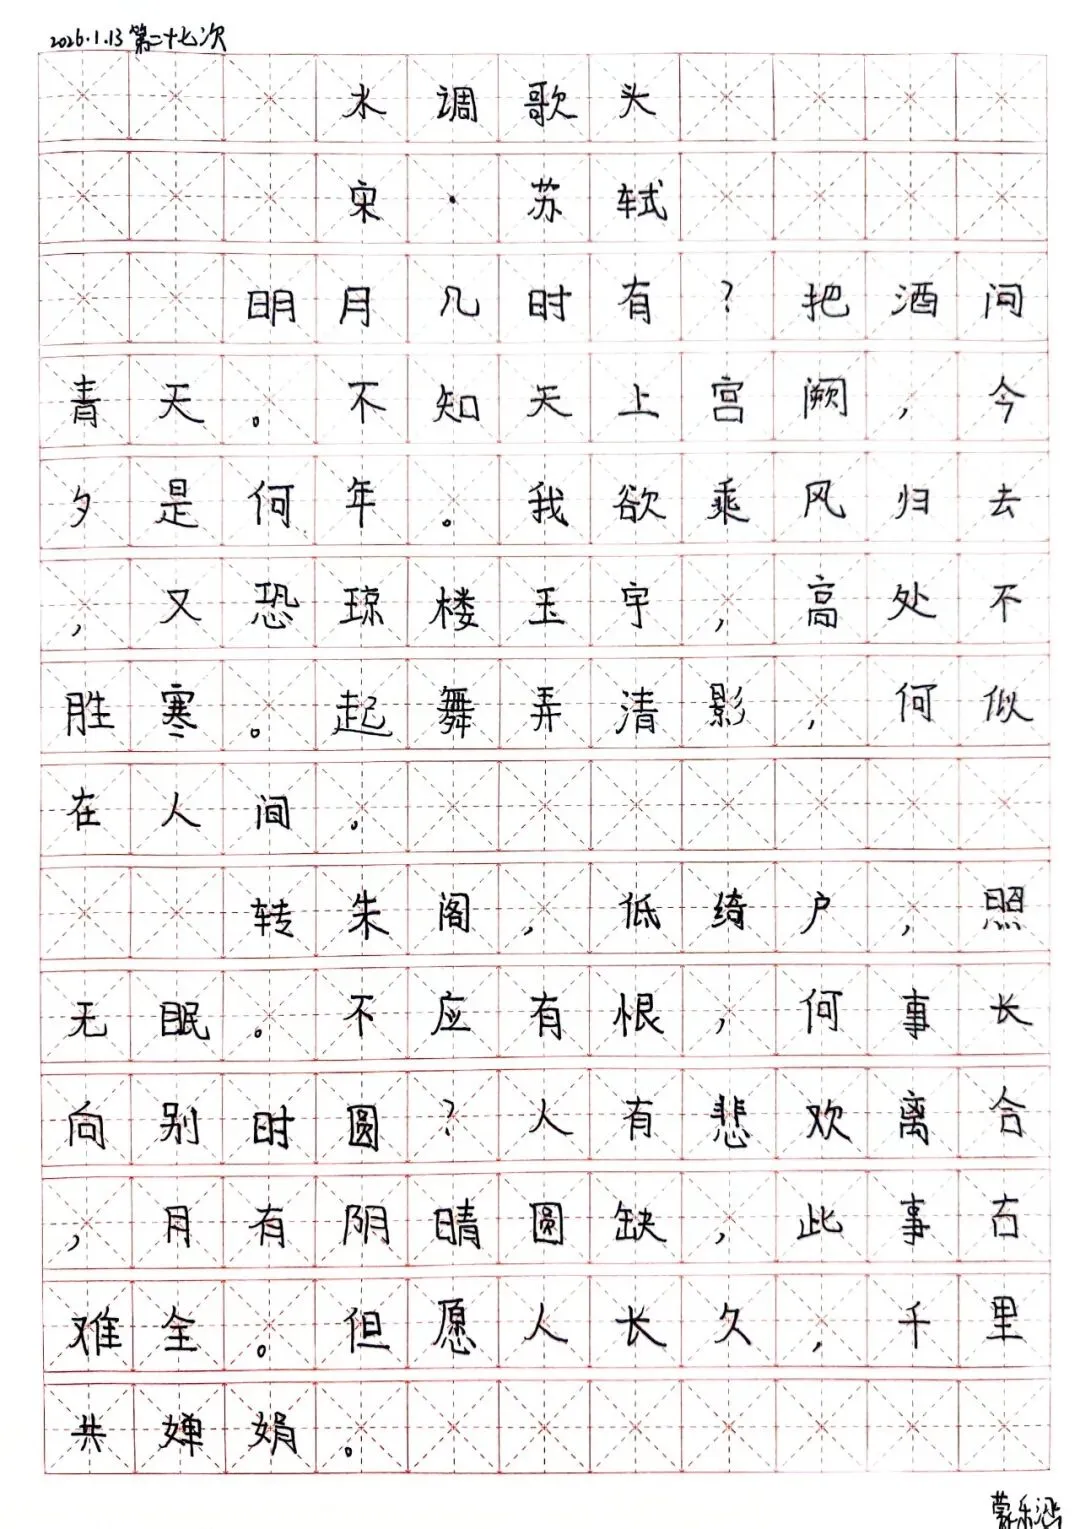 2026.1.13 第二十七次
水调歌头
宋·苏轼
明月几时有?把酒问
青天。不知天上宫阙,今
夕是何年。我欲乘风归去
,又恐琼楼玉宇,高处不
胜寒。起舞弄清影,何似
在人间。
转朱阁,低绮户,照
无眠。不应有恨,何事长
向别时圆?人有悲欢离合
,月有阴晴圆缺,此事古
难全。但愿人长久,千里
共婵娟。